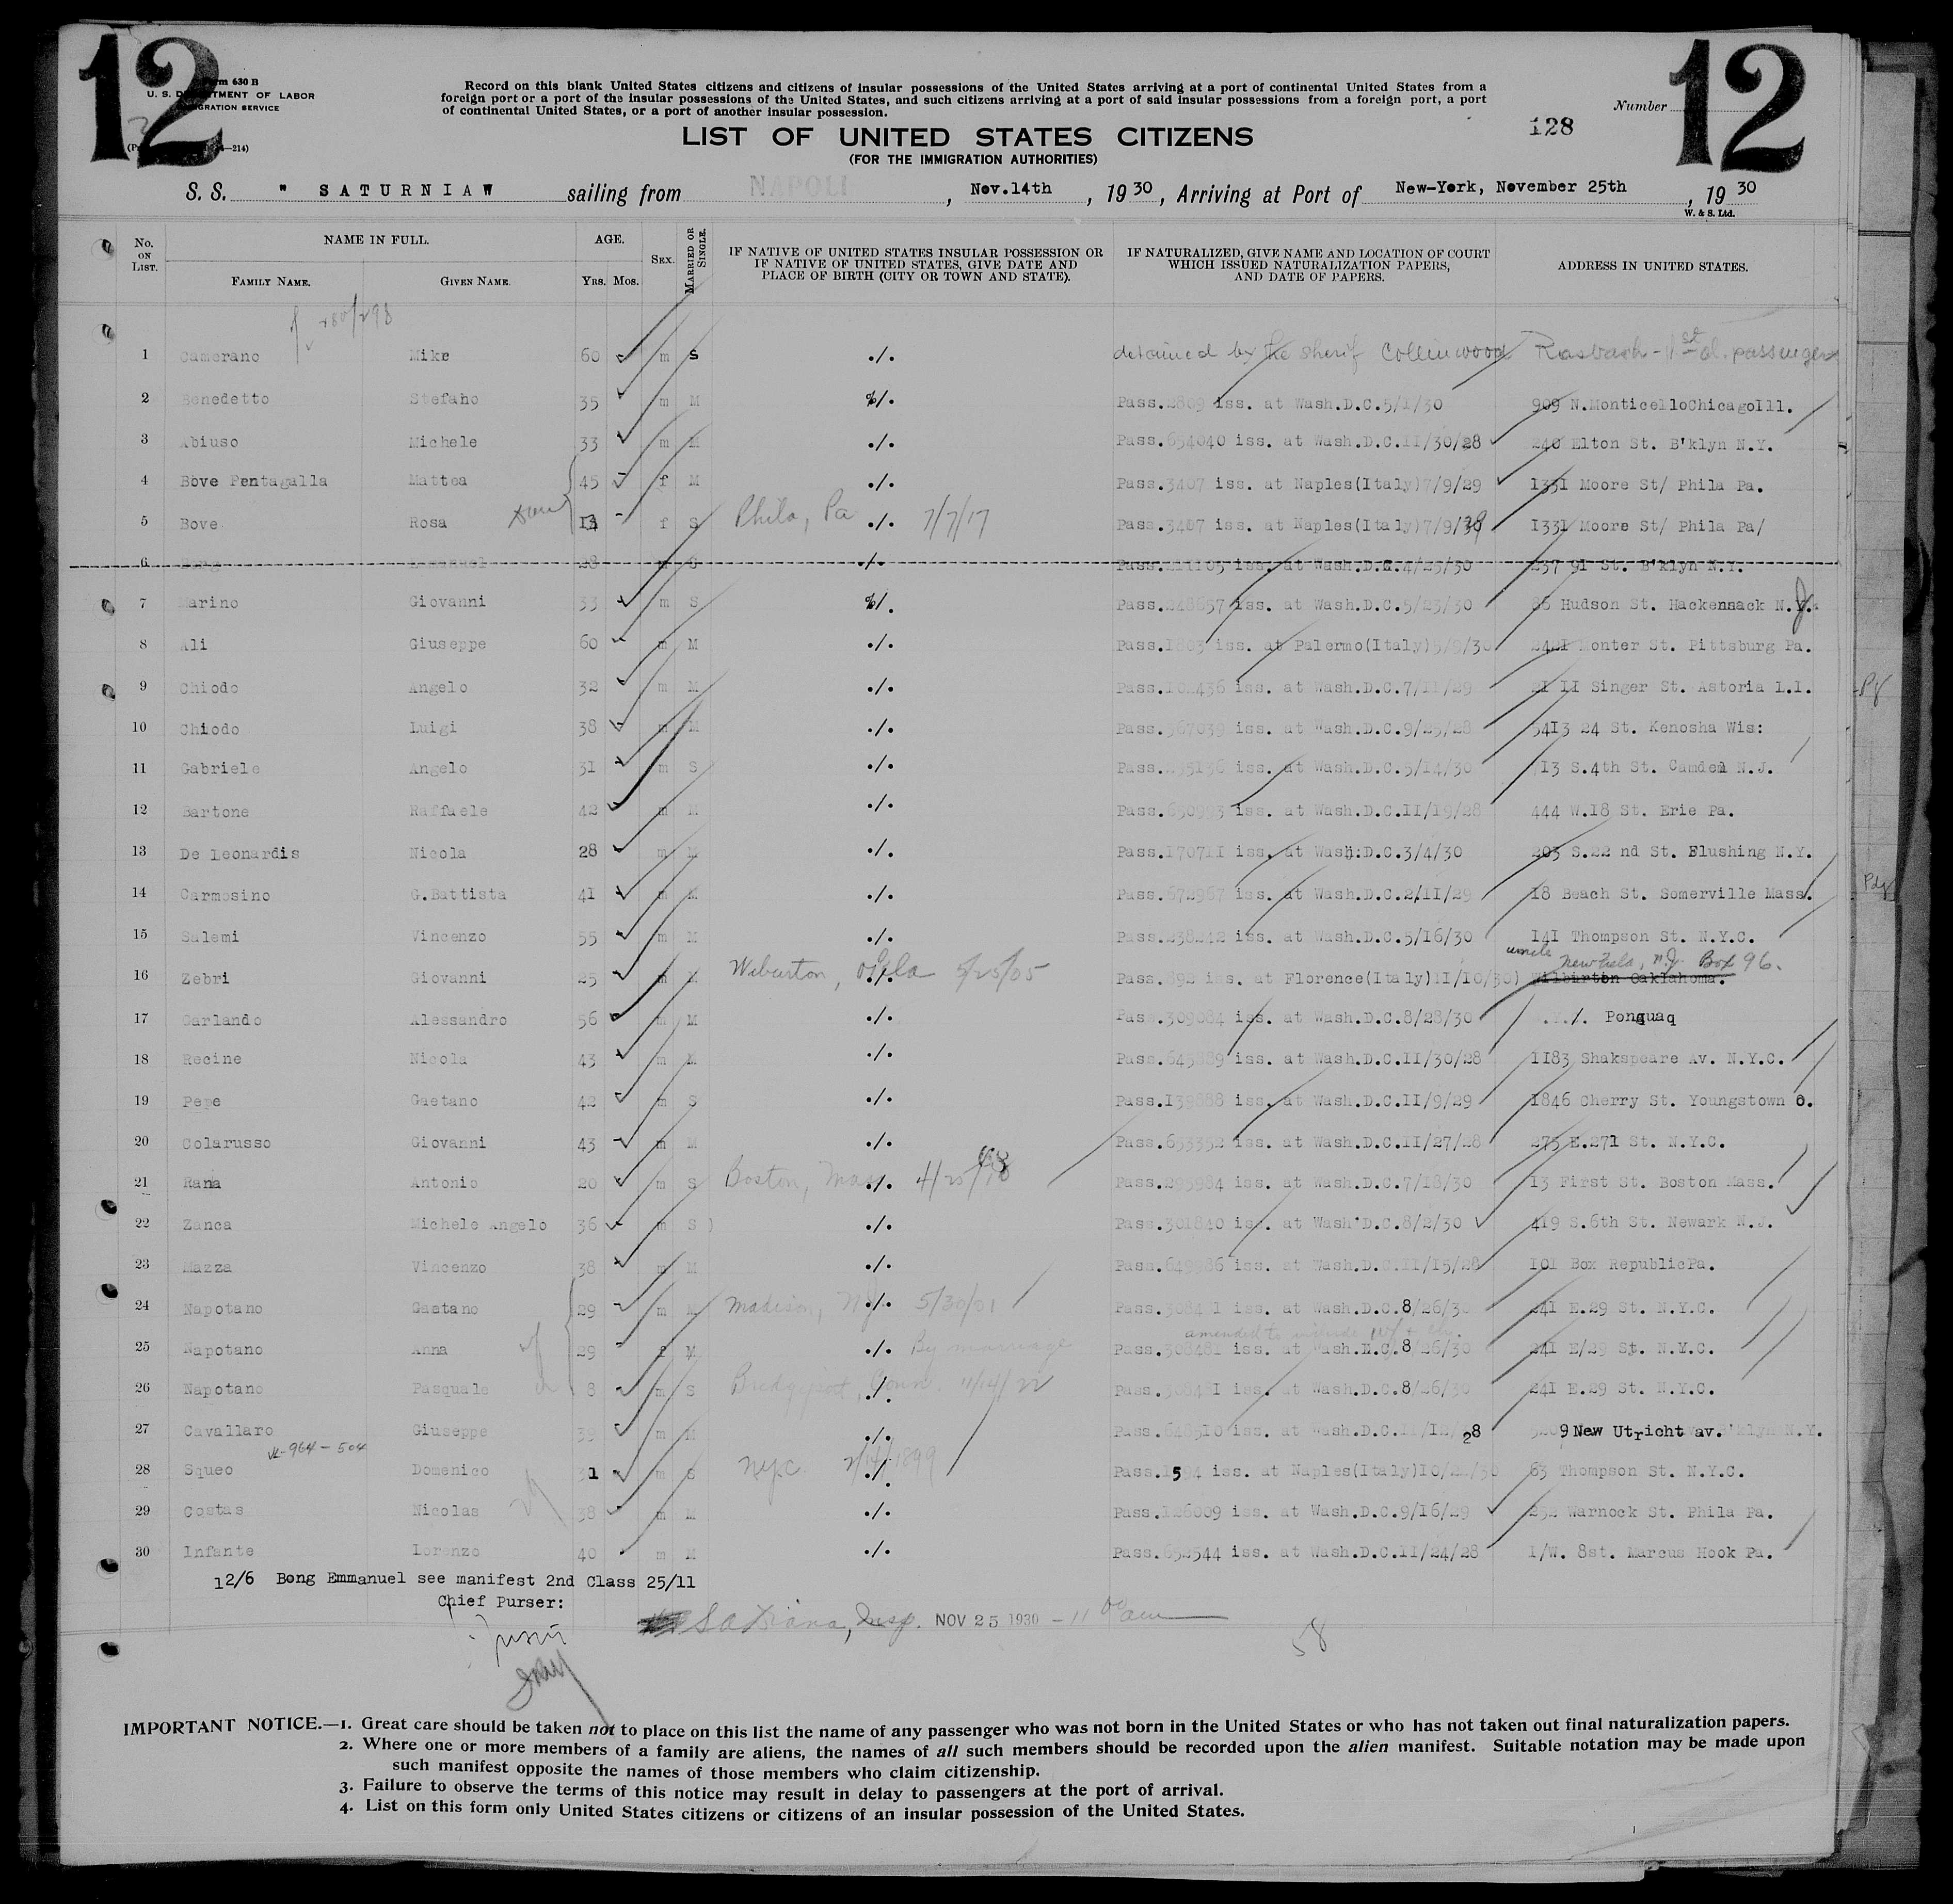 12
12
Form 630 B
U. S. DEPARTMENT OF LABOR
IMMIGRATION SERVICE
Record on this blank United States citizens and citizens of insular possessions of the United States arriving at a port of continental United States from a
foreign port or a port of the insular possessions of the United States, and such citizens arriving at a port of said insular possessions from a foreign port, a port
of continental United States, or a port of another insular possession.
Number
128
LIST OF UNITED STATES CITIZENS
(FOR THE IMMIGRATION AUTHORITIES)
S. S. " SATURNIAW sailing from NAPOLI, Nov.14th, 1930, Arriving at Port of New-York, November 25th, 1930
W. & S. Ltd.
No. ON LIST. NAME IN FULL. AGE. SEX. MARRIED OR SINGLE. IF NATIVE OF UNITED STATES INSULAR POSSESSION OR IF NATIVE OF UNITED STATES, GIVE DATE AND PLACE OF BIRTH (CITY OR TOWN AND STATE). IF NATURALIZED, GIVE NAME AND LOCATION OF COURT WHICH ISSUED NATURALIZATION PAPERS, AND DATE OF PAPERS. ADDRESS IN UNITED STATES.
FAMILY NAME. GIVEN NAME. YRS. MOS.
1 Camerano Mike 60 m S ./. detained by the sherif Collinwood Rasbach - 1st cl. passenger
2 Benedetto Stefano 35 m M %/. Pass.2809 iss. at Wash.D.C.5/1/30 909 N.MonticelloChicagoIll.
3 Abiuso Michele 33 m M ./. Pass.654040 iss. at Wash.D.C.II/30/28 240 Elton St. B'klyn N.Y.
4 Bove Pentagalla Mattea 45 f M ./. Pass.3407 iss. at Naples(Italy)7/9/29 I33I Moore St/ Phila Pa.
5 Bove Rosa 13 f S Phila, Pa ./. 7/7/17 Pass.3407 iss. at Naples(Italy)7/9/29 I33I Moore St/ Phila Pa/
6 28 m S ./. iss. at Wash.D.C.4/25/30 237 91 St. B'klyn N.Y.
7 Marino Giovanni 33 m S %/. Pass.248657 iss. at Wash.D.C.5/23/30 86 Hudson St. Hackennack N.J.
8 Ali Giuseppe 60 m M ./. Pass.I803 iss. at Palermo(Italy)5/9/30 242I Honter St. Pittsburg Pa.
9 Chiodo Angelo 32 m M ./. Pass.I02436 iss. at Wash.D.C.7/II/29 2I II Singer St. Astoria L.I.
10 Chiodo Luigi 38 m M ./. Pass.367039 iss. at Wash.D.C.9/25/28 54I3 24 St. Kenosha Wis:
11 Gabriele Angelo 31 m S ./. Pass.295136 iss. at Wash.D.C.5/I4/30 7I3 S.4th St. Camden N.J.
12 Bartone Raffaele 42 m M ./. Pass.650993 iss. at Wash.D.C.II/I9/28 444 W.I8 St. Erie Pa.
13 De Leonardis Nicola 28 m M ./. Pass.I707II iss. at Wash:D.C.3/4/30 203 S.22 nd St. Flushing N.Y.
14 Carmosino G.Battista 41 m M ./. Pass.672967 iss. at Wash.D.C.2/II/29 I8 Beach St. Somerville Mass.
15 Salemi Vincenzo 55 m M ./. Pass.238242 iss. at Wash.D.C.5/I6/30 I4I Thompson St. N.Y.C.
uncle Newfield, N.J. Box 96.
16 Zebri Giovanni 25 m M Wilburton, Okla ./. 5/25/05 Pass.892 iss. at Florence(Italy)II/I0/30) Wilburton Oaklahoma.
17 Garlando Alessandro 56 m M ./. Pass.309084 iss. at Wash.D.C.8/28/30 ./. Ponquaq
18 Recine Nicola 43 m M ./. iss. at Wash.D.C.II/30/28 II83 Shakspeare Av. N.Y.C.
19 Pepe Gaetano 42 m S ./. Pass.I39888 iss. at Wash.D.C.II/9/29 I846 Cherry St. Youngstown O.
20 Colarusso Giovanni 43 m M ./. Pass.653352 iss. at Wash.D.C.II/27/28 275 E.27I St. N.Y.C.
21 Rana Antonio 20 m S Boston, Mass ./. 4/25/ Pass.295984 iss. at Wash.D.C.7/I8/30 I3 First St. Boston Mass.
22 Zanca Michele Angelo 36 m S ) ./. Pass.30I840 iss. at Wash.D.C.8/2/30 4I9 S.6th St. Newark N.J.
23 Mazza Vincenzo 38 m M ./. iss. at Wash.D.C.II/I5/28 I0I Box RepublicPa.
24 Napotano Gaetano 29 m M Madison, NJ ./. 5/30/01 Pass.30848I iss. at Wash.D.C.8/26/30 24I E.29 St. N.Y.C.
amended to include
25 Napotano Anna 29 f M ./. By marriage Pass.30848I iss. at Wash.D.C.8/26/30 24I E/29 St. N.Y.C.
26 Napotano Pasquale 8 m S Bridgeport, Conn. ./. 11/14/22 Pass.30848I iss. at Wash.D.C.8/26/30 24I E.29 St. N.Y.C.
27 Cavallaro Giuseppe 39 m M ./. Pass.6485I0 iss. at Wash.D.C.II/I2/28 New Utricht av. B'klyn N.Y.
964 - 504
28 Squeo Domenico 31 m S N.Y.C. ./. 1899 iss. at Naples(Italy) 63 Thompson St. N.Y.C.
29 Costas Nicolas 38 m M ./. Pass.I26009 iss. at Wash.D.C.9/I6/29 232 Warnock St. Phila Pa.
30 Infante Lorenzo 40 m M ./. Pass.652544 iss. at Wash.D.C.II/24/28 I/W. 8st. Marcus Hook Pa.
12/6 Bong Emmanuel see manifest 2nd Class 25/11
Chief Purser:
Insp. NOV 25 1930 - 11 00 am
58
IMPORTANT NOTICE.—1. Great care should be taken not to place on this list the name of any passenger who was not born in the United States or who has not taken out final naturalization papers.
2. Where one or more members of a family are aliens, the names of all such members should be recorded upon the alien manifest. Suitable notation may be made upon
such manifest opposite the names of those members who claim citizenship.
3. Failure to observe the terms of this notice may result in delay to passengers at the port of arrival.
4. List on this form only United States citizens or citizens of an insular possession of the United States.